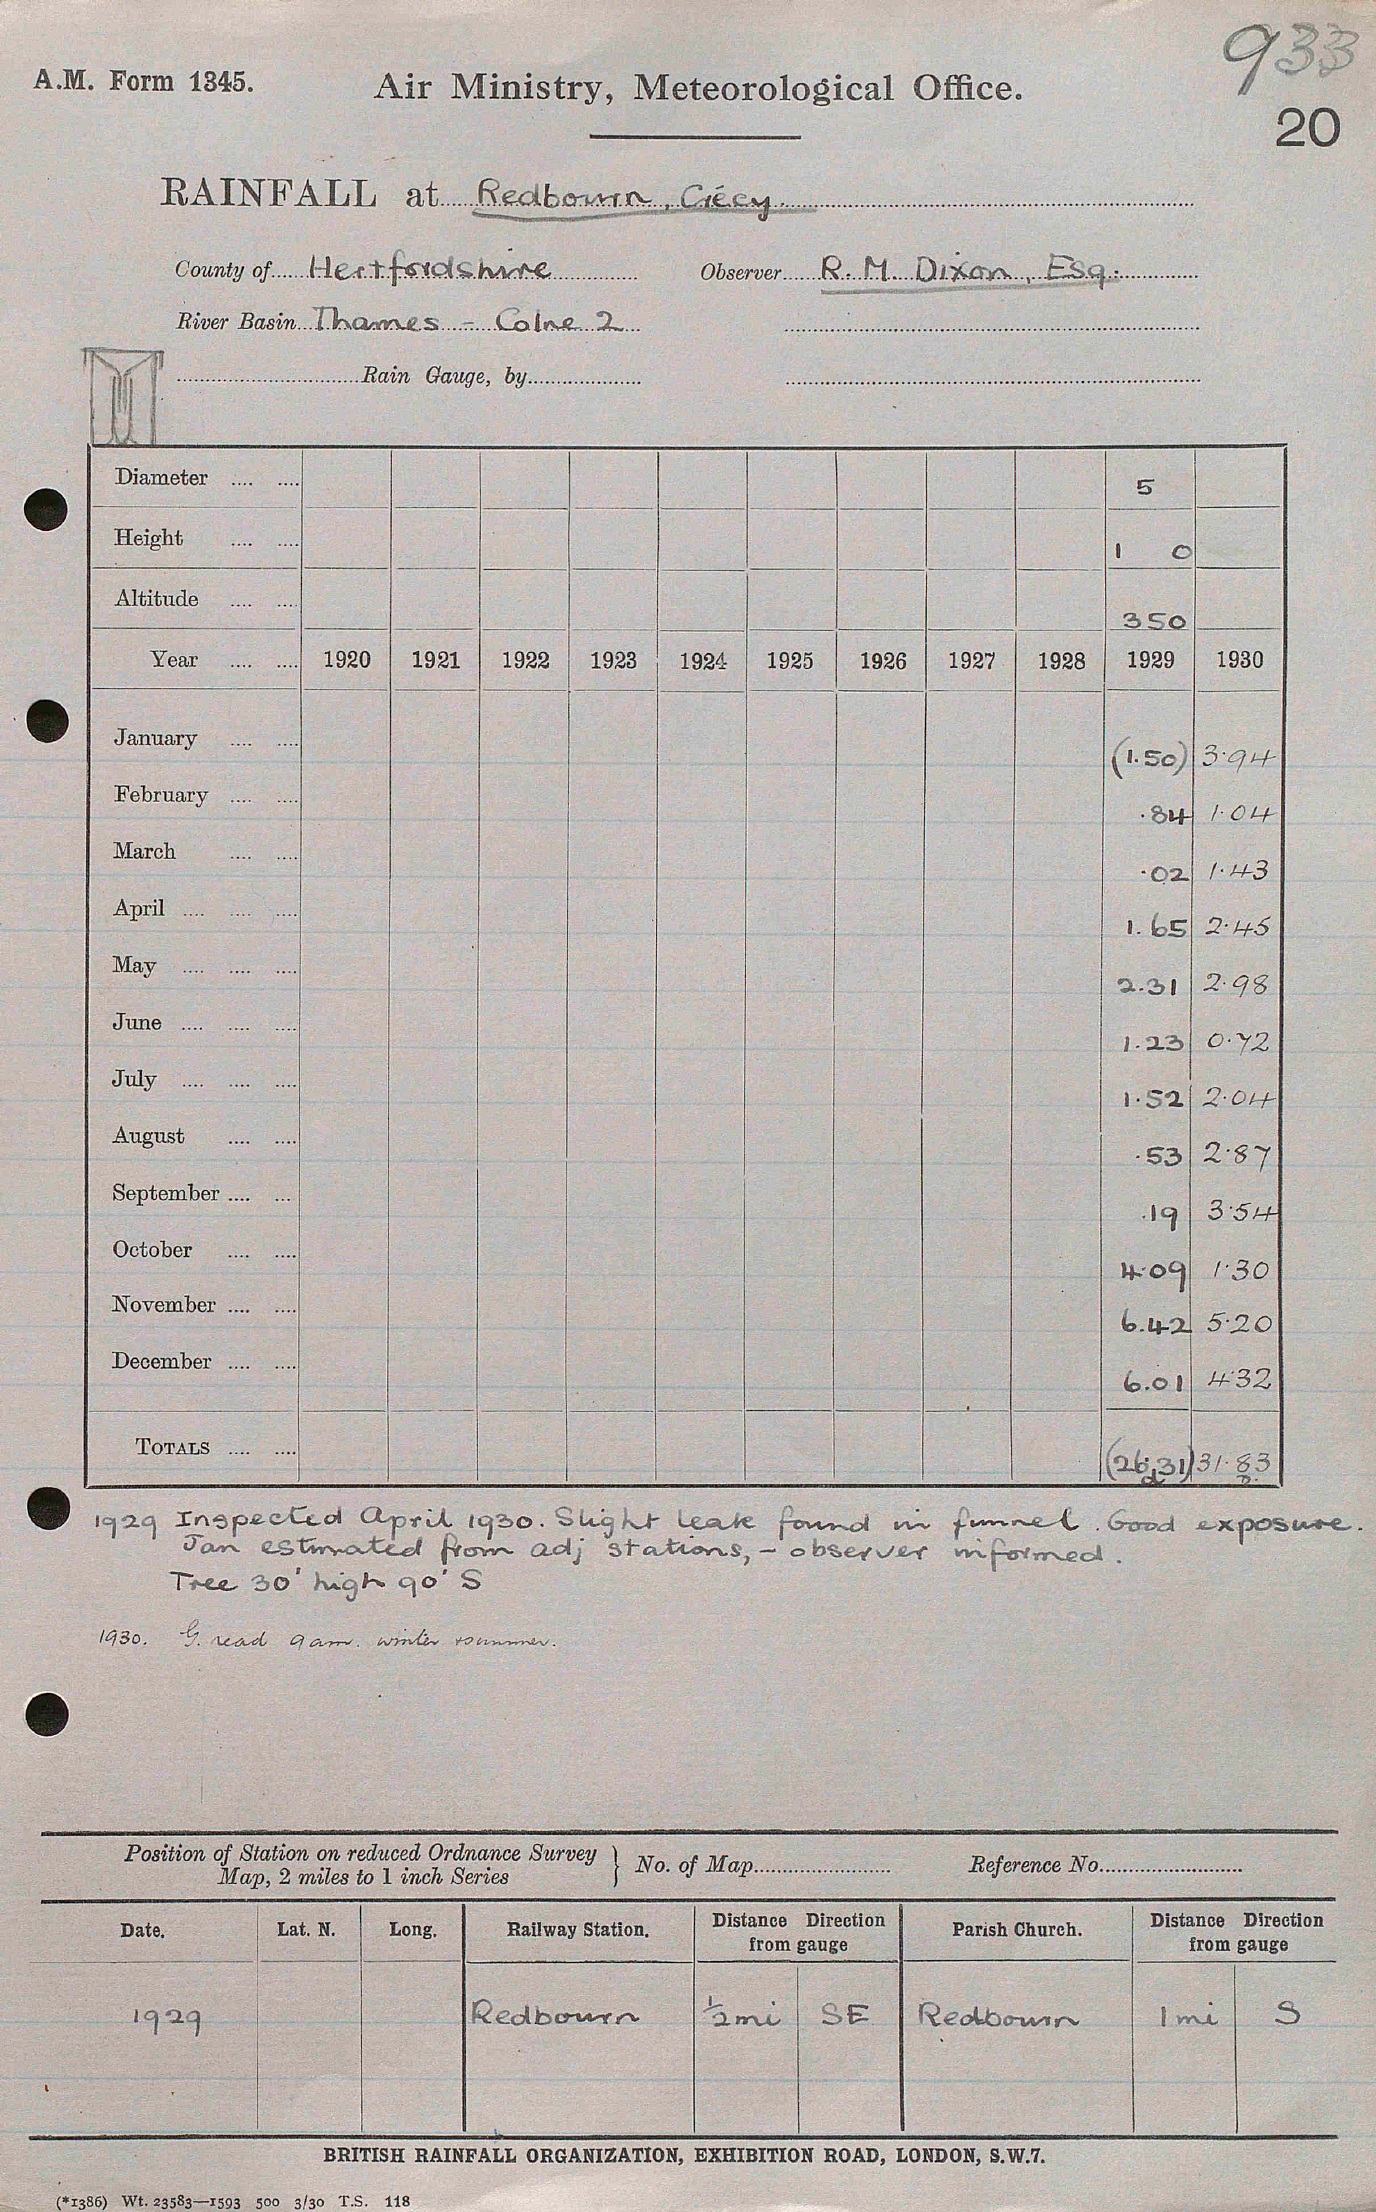 933
A.M. Form 1345. Air Ministry, Meteorological Office.
20
RAINFALL at Redbourn, Crécy.
County of Hertfordshire Observer R. M. Dixon, Esq.
River Basin Thames - Colne 2
Rain Gauge, by
Diameter 5
Height 1 0
Altitude 350
Year 1920 1921 1922 1923 1924 1925 1926 1927 1928 1929 1930
January (1.50) 3.94
February .84 1.04
March .02 1.43
April 1.65 2.45
May 2.31 2.98
June 1.23 0.72
July 1.52 2.04
August .53 2.87
September .19 3.54
October 4.09 1.30
November 6.42 5.20
December 6.01 4.32
TOTALS (26.31) 31.83
1929 Inspected April 1930. Slight leak found in funnel. Good exposure.
Jan estimated from adj stations, - observer informed.
Tree 30' high 90' S
1930. G. read 9 am. winter + summer.
Position of Station on reduced Ordnance Survey
Map, 2 miles to 1 inch Series } No. of Map Reference No.
Date. Lat. N. Long. Railway Station. Distance Direction from gauge Parish Church. Distance Direction from gauge
1929 Redbourn ½ mi SE Redbourn 1 mi S
BRITISH RAINFALL ORGANIZATION, EXHIBITION ROAD, LONDON, S.W.7.
(*1386) Wt. 23583—1593 500 3/30 T.S. 118